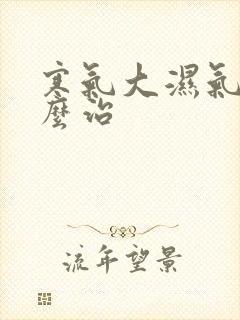 寒氣大濕氣
麼治
流年望景